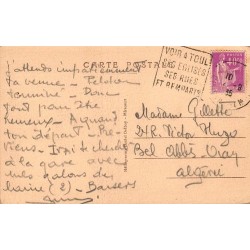 CARTE POSTALE
VOIR A TOUL
SES EGLISES
SES RUES
ET REMPARTS
J'attends impatiemment
ta venue - Peloton
terminé - Donc
tout pour être
heureux - A quand
ton départ - Re-
viens - Irai te chercher
à la gare avec
mes galons de
laine (2) - Baisers
Madame Gillette
Rue Victor Hugo
Bel Abbès
Algérie